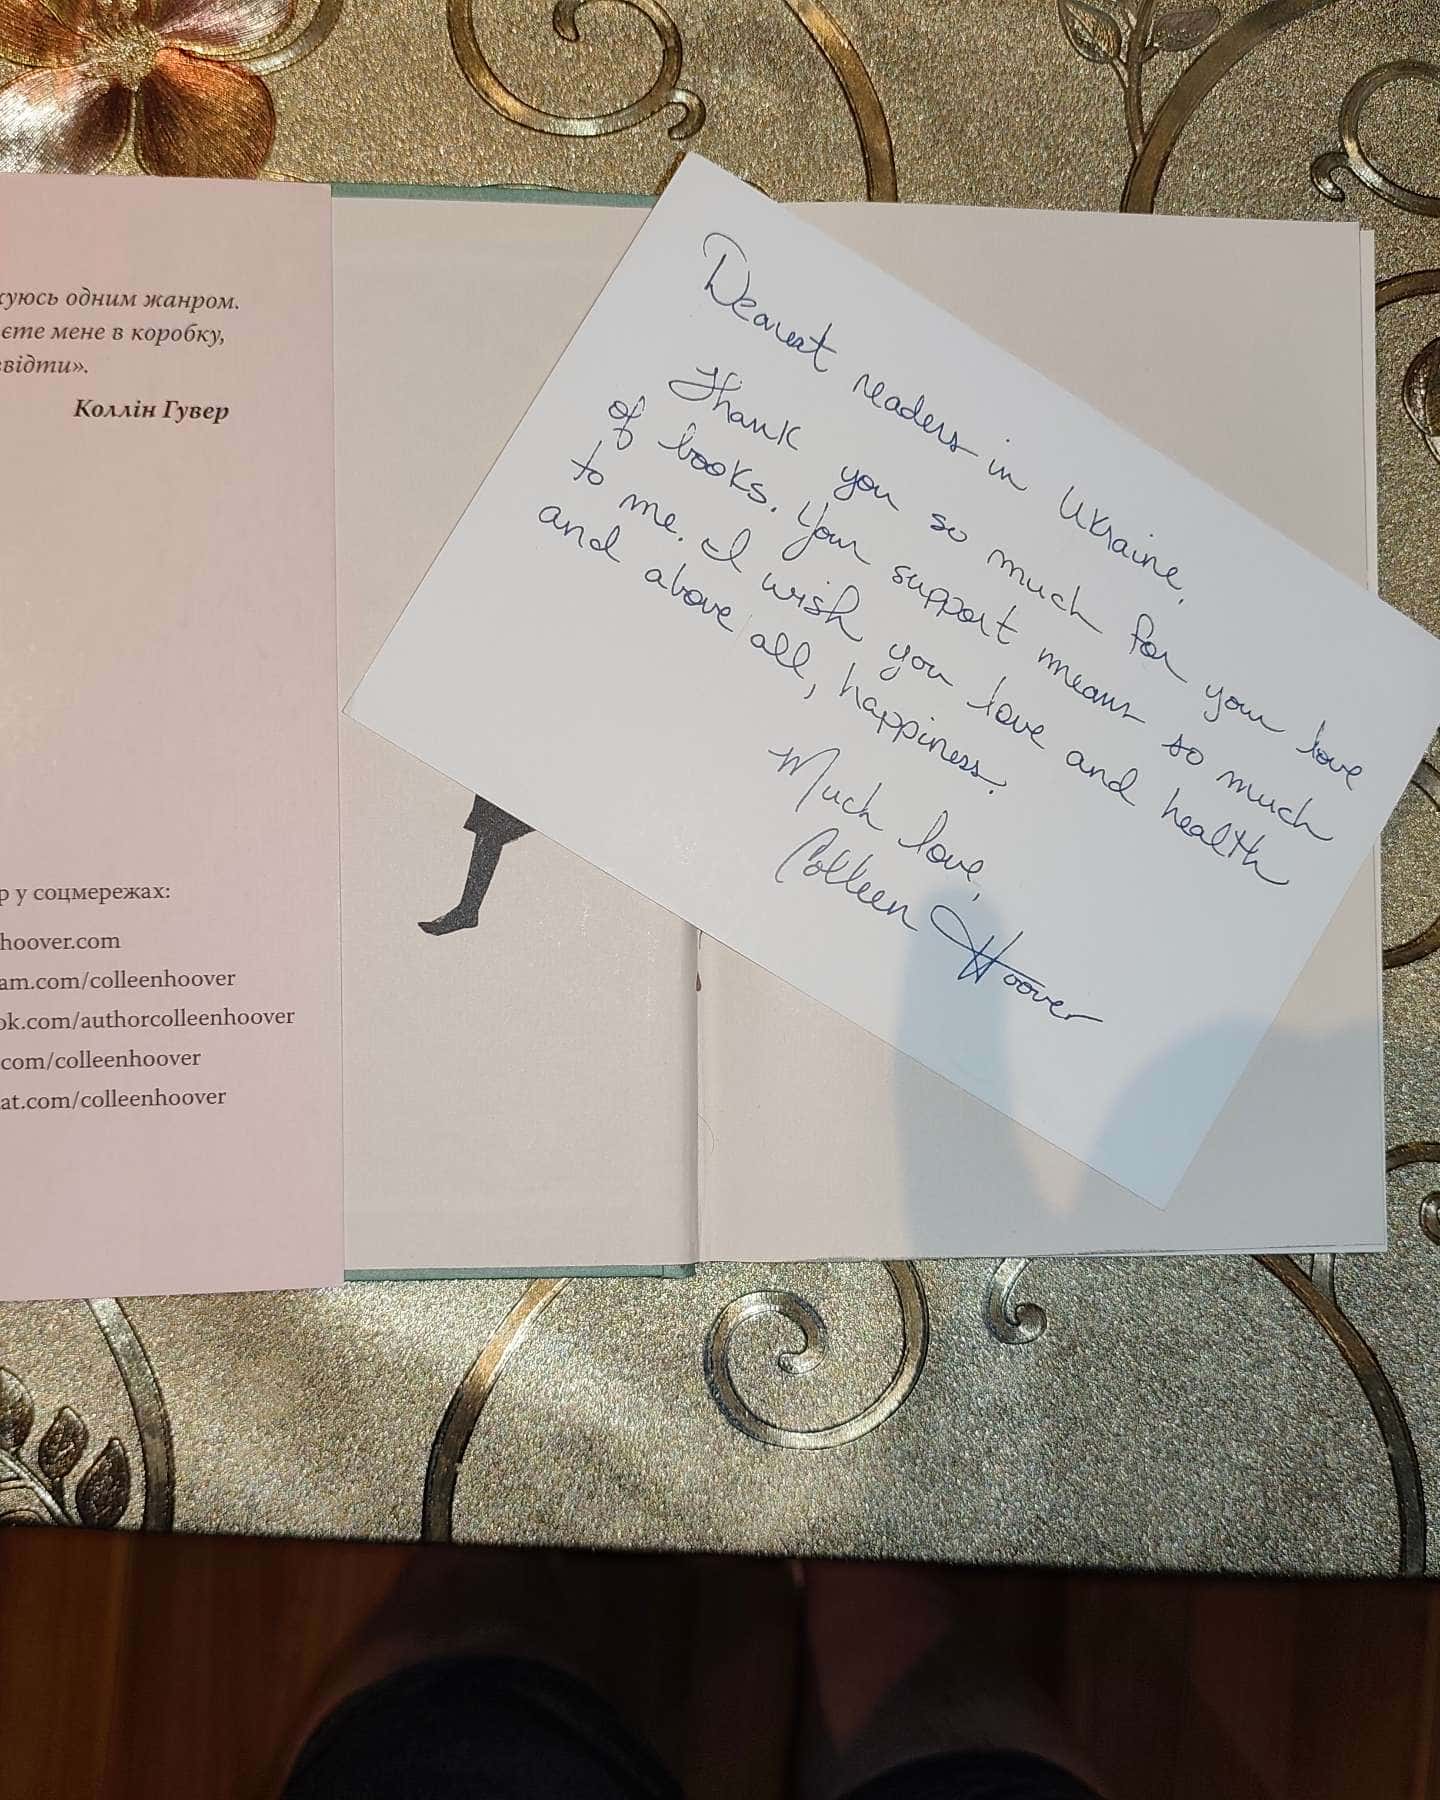 куюсь одним жанром.
єте мене в коробку,
звідти».
Коллін Гувер
р у соцмережах:
hoover.com
am.com/colleenhoover
ok.com/authorcolleenhoover
.com/colleenhoover
at.com/colleenhoover
Dearest readers in Ukraine,
Thank you so much for your love
of books. Your support means so much
to me. I wish you love and health
and above all, happiness.
Much love,
Colleen Hoover